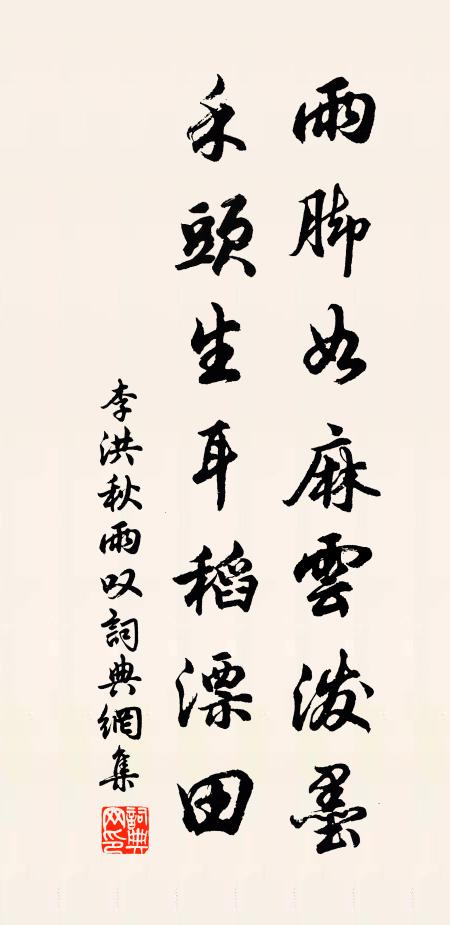 雨脚如麻雲泼墨
禾頭生耳稻漂田
李洪秋雨叹詞典網集
詞典网印